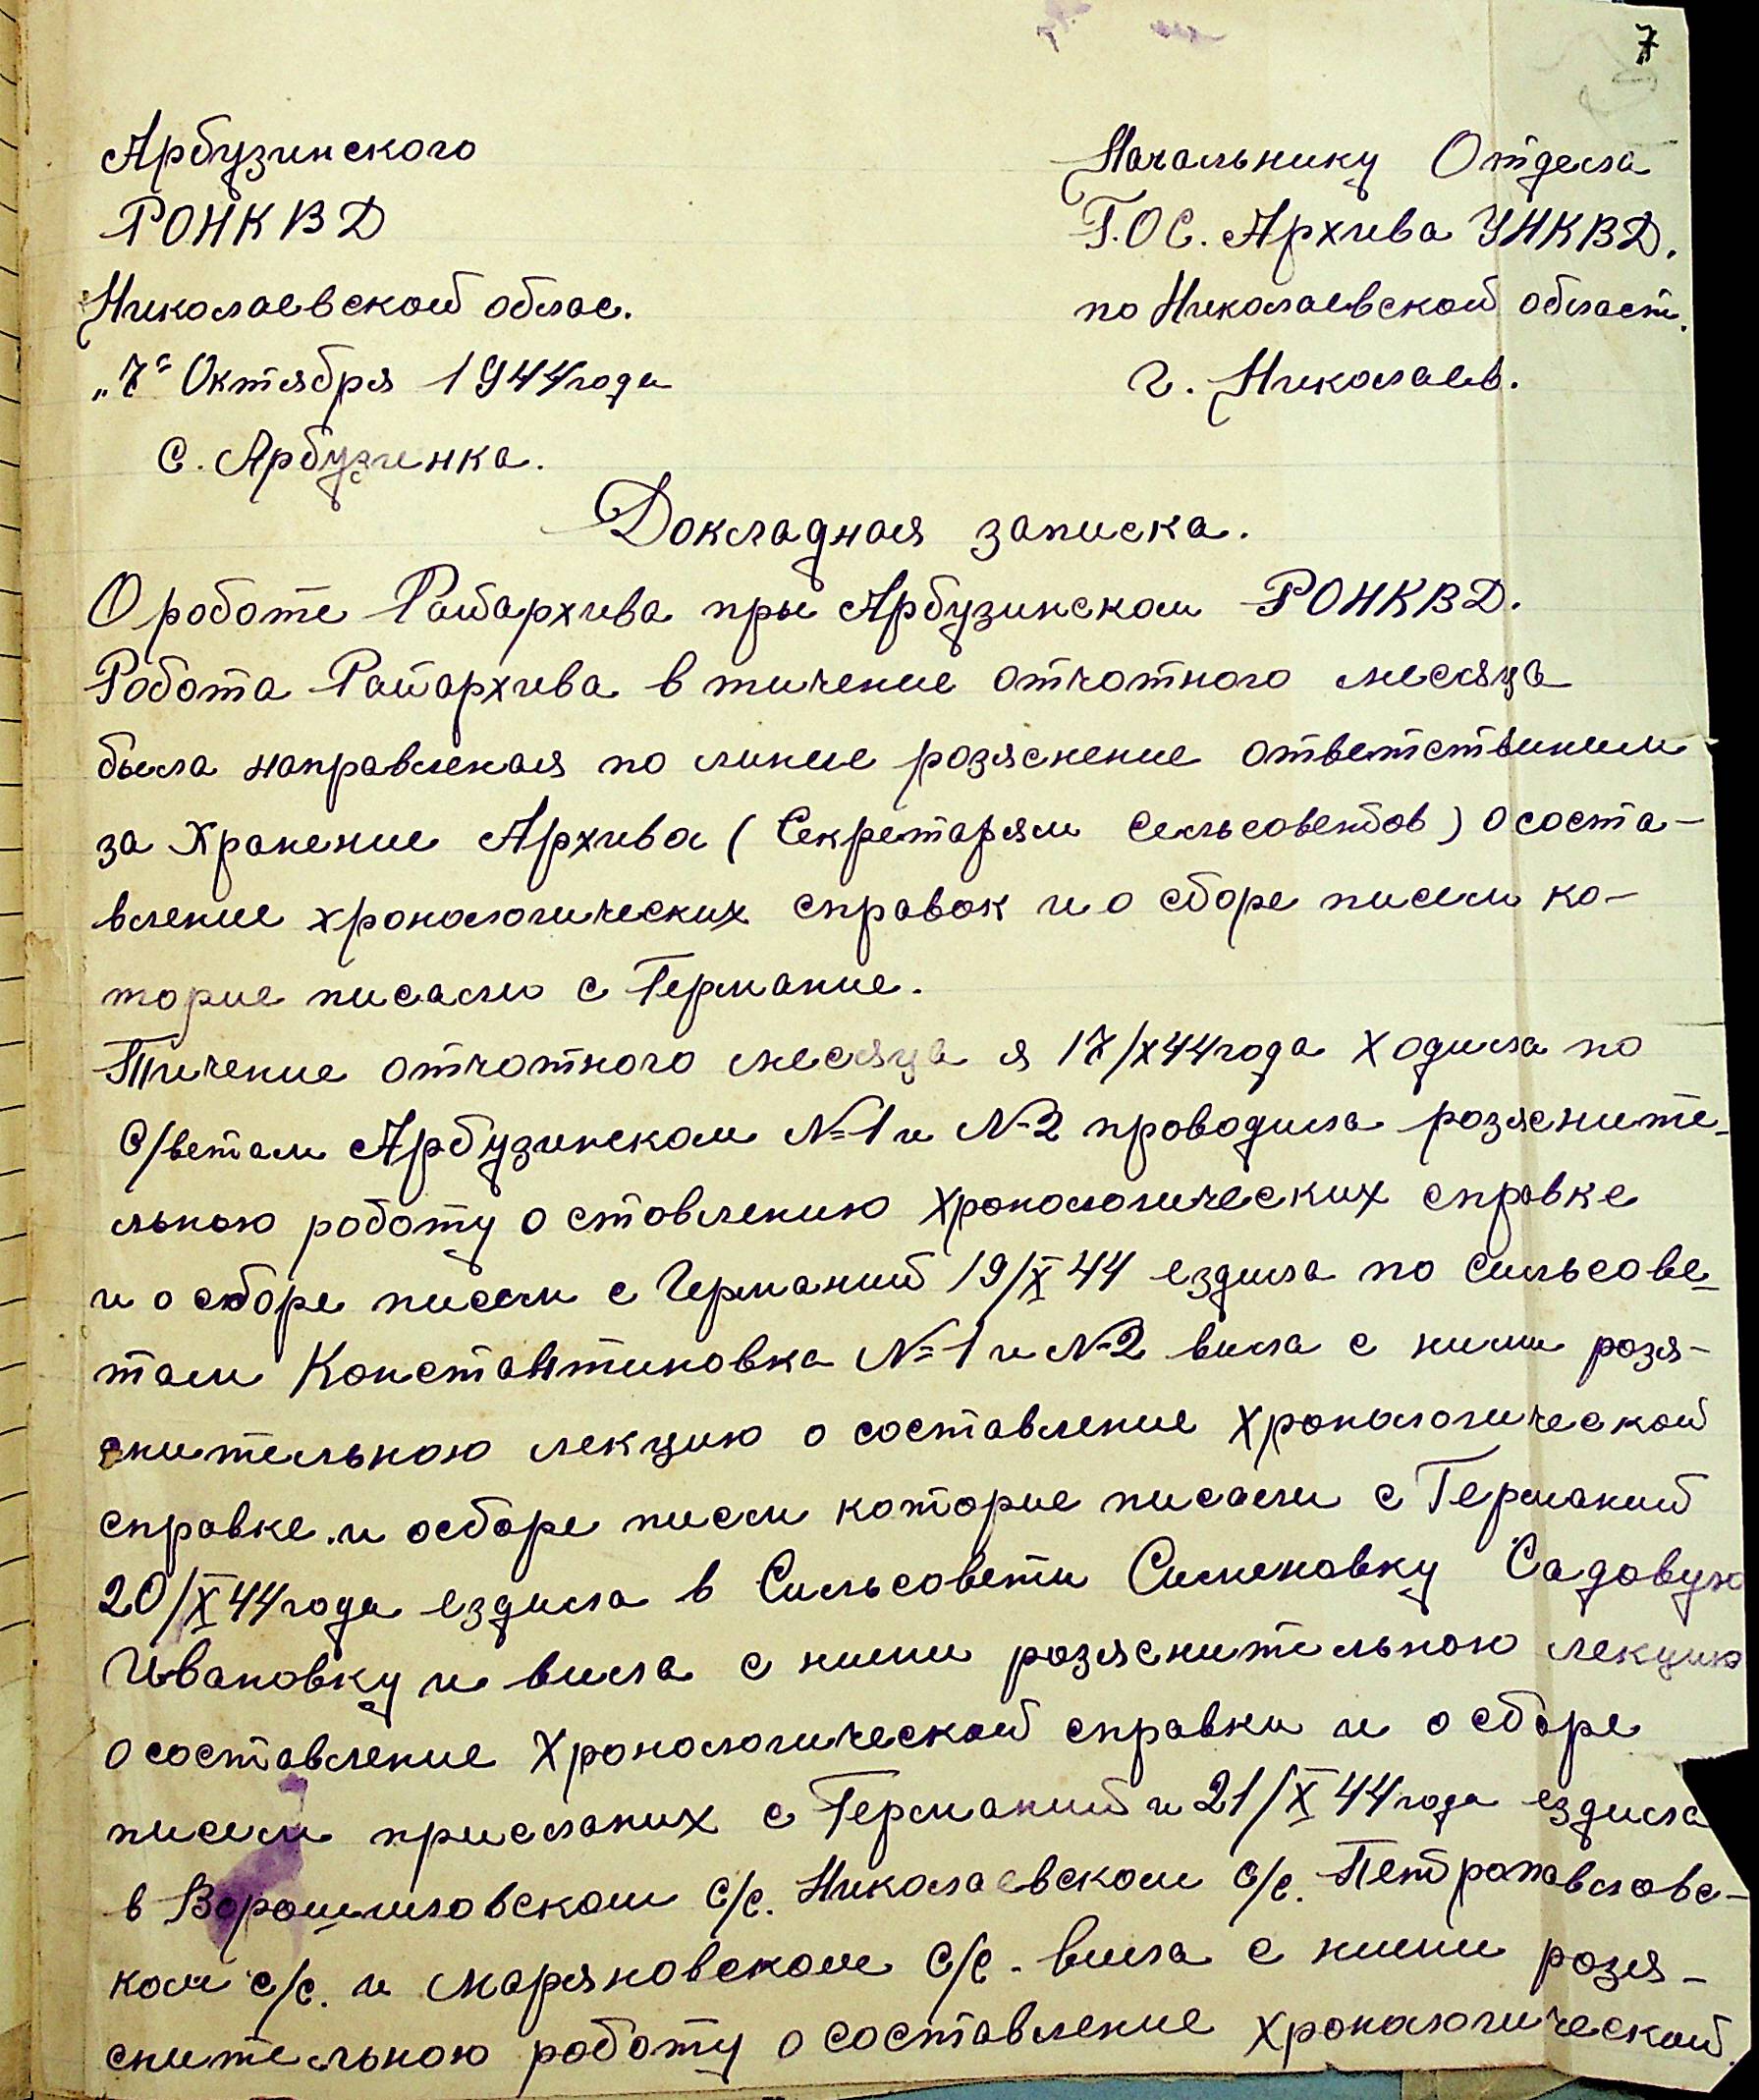 7
Арбузинского
РОНКВД
Николаевской облас.
„7“ Октября 1944 года
С. Арбузинка.
Начальнику Отдела
Г.О С. Архива УНКВД.
по Николаевской област.
г. Николаев.
Докладная записка.
О роботе Райархива при Арбузинском РОНКВД.
Робота Райархива в тичение отчотного месяца
была направленая по линие розяснение ответствиним
за Хранение Архива (Секретарям Сельсоветов) о соста-
вление хронологических справок и о сборе писем ко-
торие писалио с Германие.
Тичение отчотного месяца я 17/х44 года Ходила по
С/ветам Арбузинском №1 и №2 проводила розясните-
льною роботу о стовлению Хронологических справке
и о сборе писем с Германий 19/X 44 ездила по Сильсове-
там Константиновка №1 и №2 вила с ними розя-
снительною лекцию о составление Хронологической
справке и о сборе писем которие писали с Германий
20/X 44 года ездила в Сильсовети Сименовку Садовую
Ивановку и вила с ними розяснительною лекцию
о составление Хронологической справки и о сборе
писем присланих с Германий и 21/X 44 года ездила
в Ворошиловском С/с. Николаевском С/с. Петропавловс-
ком с/с. и Маряновском С/с. вила с ними розя-
снительною роботу о составление хронологической